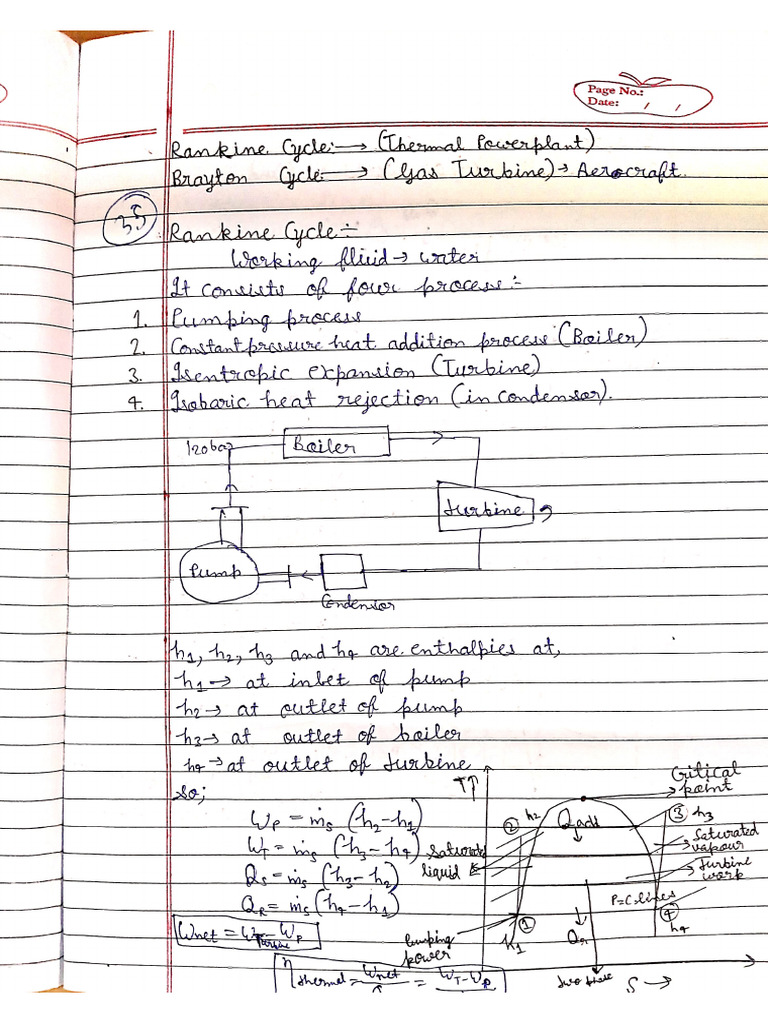 Page No.:
Date: / /
Rankine Cycle:→ (Thermal Powerplant)
Brayton Cycle→ (Gas Turbine)→ Aerocraft.
35
Rankine Cycle÷
Working fluid → water
It consists of four process:-
1. Pumping process
2. Constant pressure heat addition process (Boiler)
3. Isentropic expansion (Turbine)
4. Isobaric heat rejection (in condensor).
120bar
Boiler
turbine
Pump
Condensor
h1, h2, h3 and h4 are enthalpies at,
h1 → at inlet of pump
h2 → at outlet of pump
h3 → at outlet of boiler
h4 → at outlet of turbine
so;
Wp = ṁs (h2-h1)
WT = ṁs (h3-h4)
Qs = ṁs (h3-h2)
QR = ṁs (h4-h1)
Wnet = WTurbine - Wp
η thermal = Wnet = WT-Wp
T↑
Critical point
② h2
Qadd
③ h3
Saturated liquid
Saturated vapour
turbine work
P=C lines
④ h4
①
h1
Pumping power
QR
two phase
S →